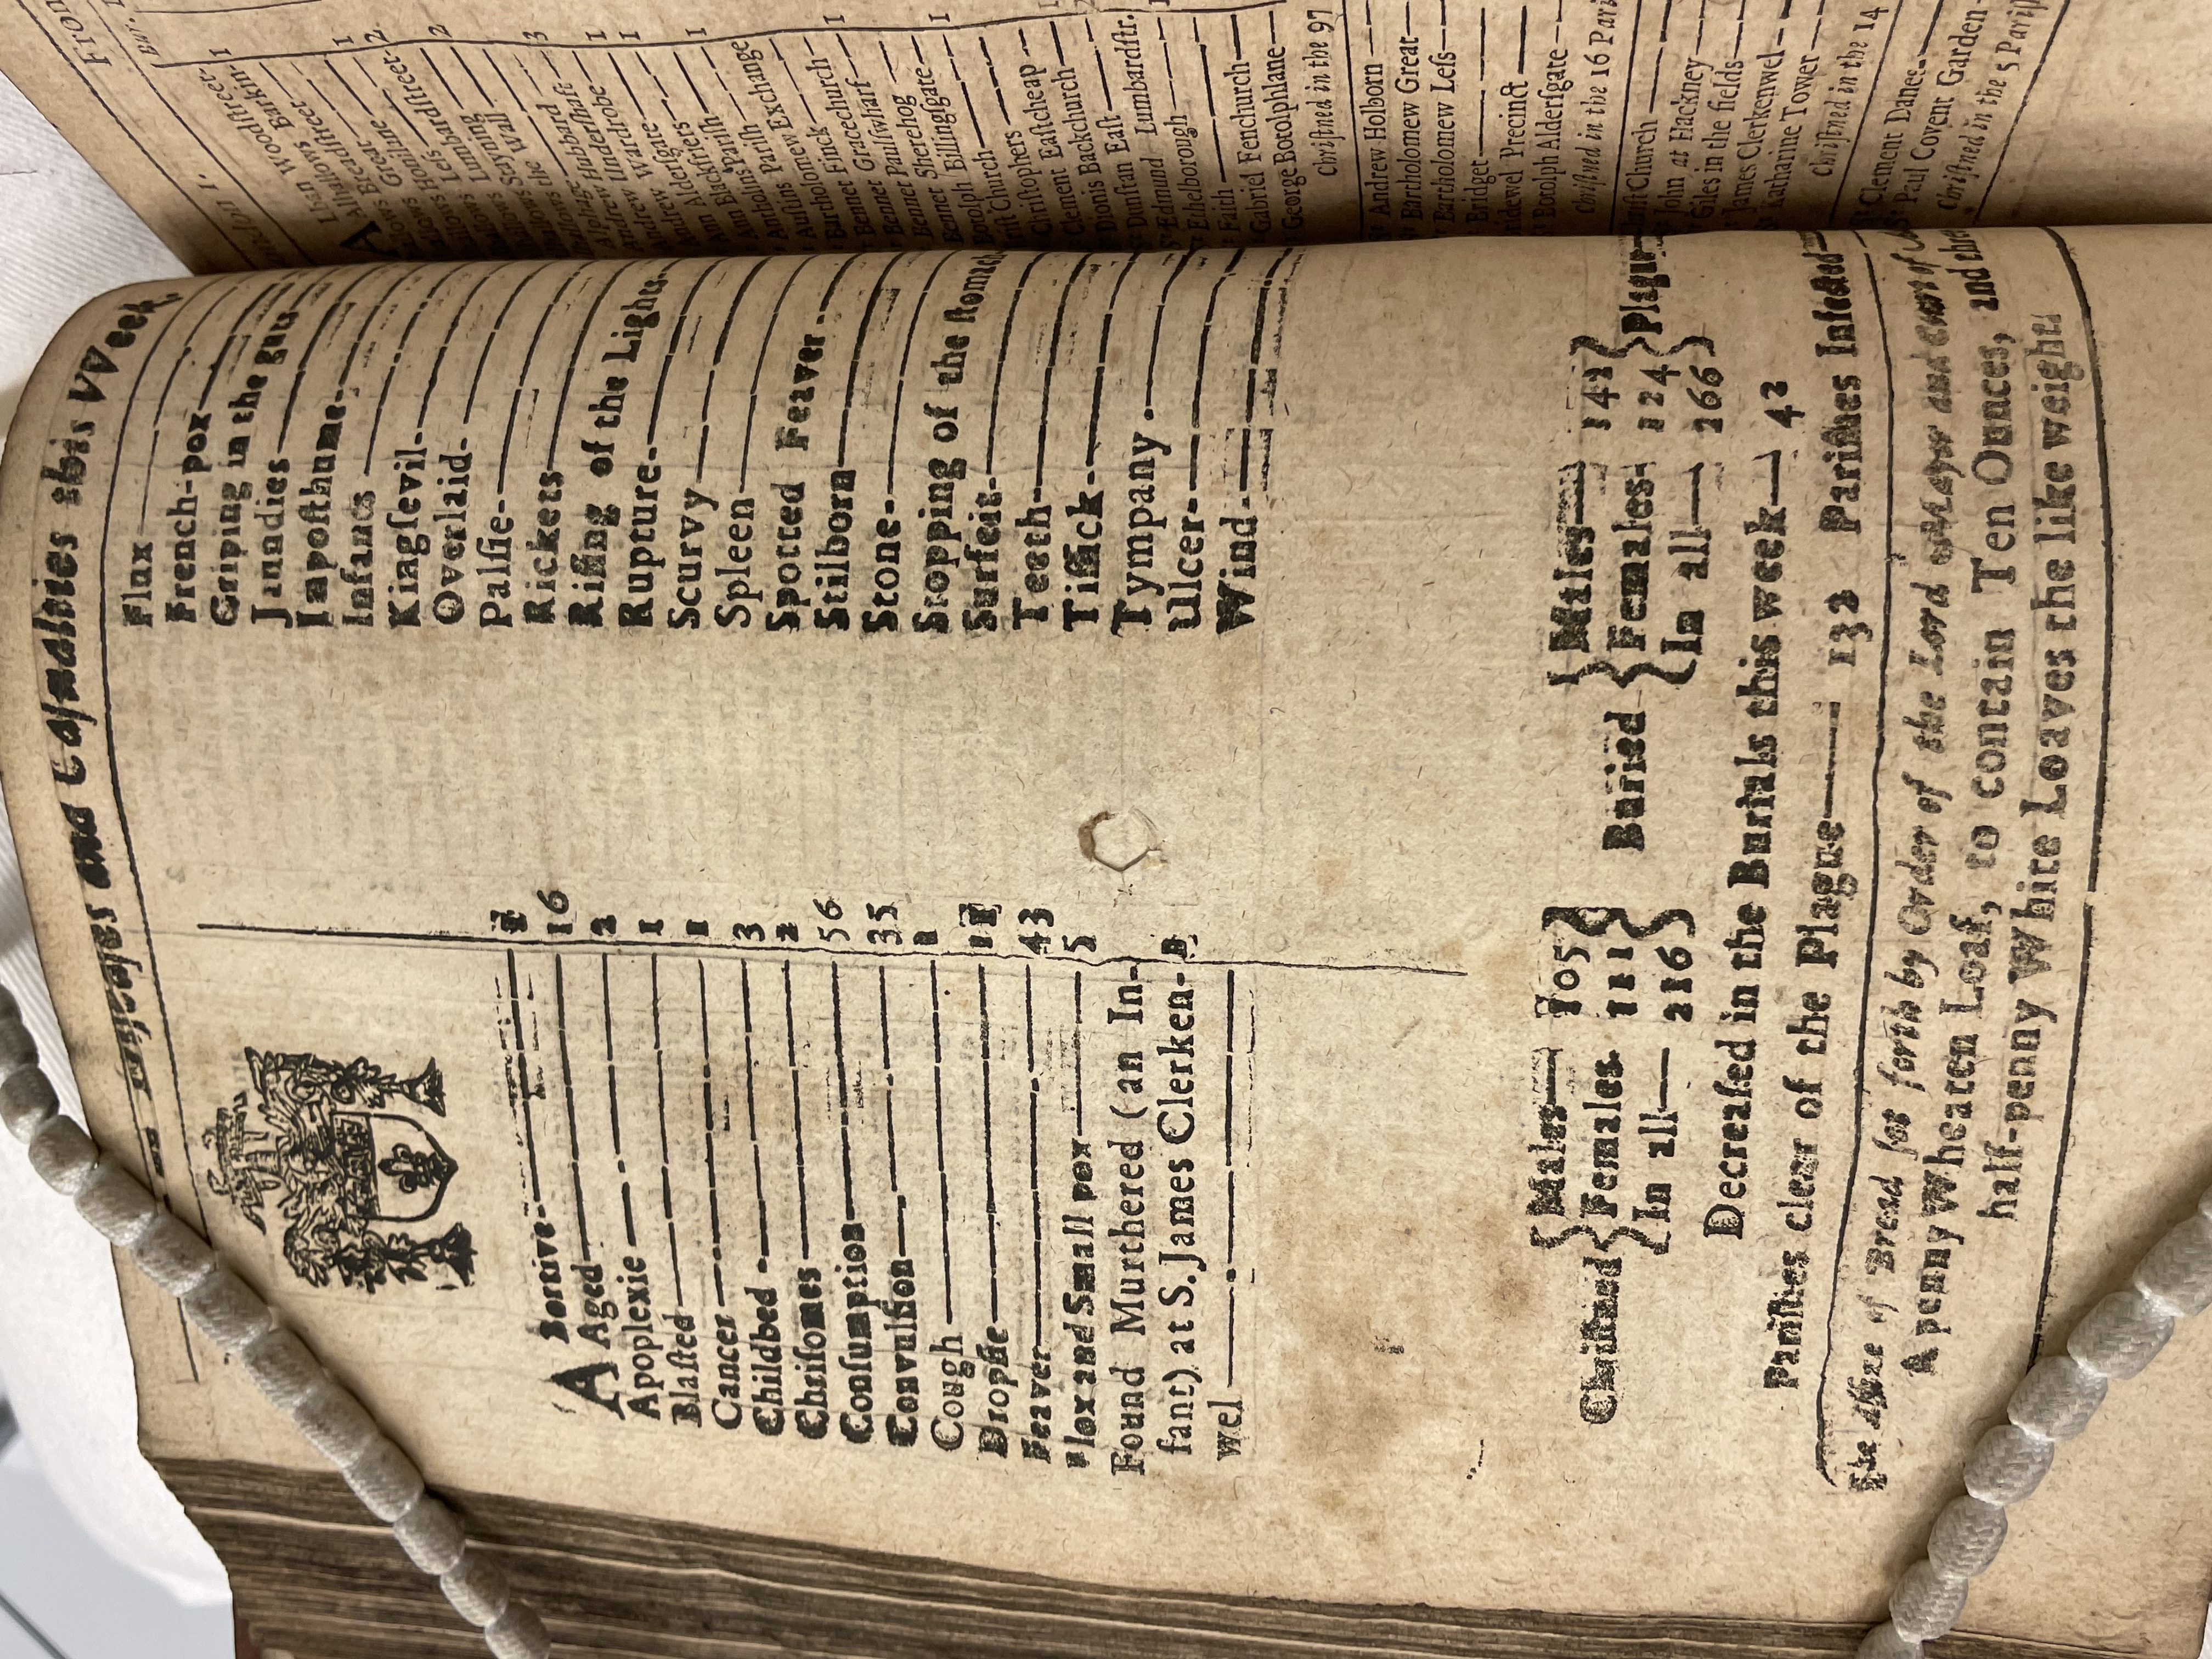 The Diseases and Casualties this Week
ABortive
Aged 16
Apoplexie 2
Blasted 1
Cancer 1
Childbed 3
Chrisomes 2
Consumption 56
Convulsion 35
Cough
Dropsie
Feaver 43
Flox and Small pox 5
Found Murthered (an In-
fant) at S. James Clerken-
wel
Flux
French-pox
Griping in the guts
Jaundies
Imposthume
Infants
Kingsevil
Overlaid
Palsie
Rickets
Rising of the Lights
Rupture
Scurvy
Spleen
Spotted Feaver
Stilborn
Stone
Stopping of the stomach
Surfeit
Teeth
Tissick
Tympany
Ulcer
Wind
Christned { Males 105
Females 111
In all 216 }
Buried { Males 142
Females 124
In all 266 } Plague
Decreased in the Burials this week 42
Parishes clear of the Plague 132 Parishes Infected
The Assize of Bread set forth by Order of the Lord Mayor and Court of
A penny Wheaten Loaf, to contain Ten Ounces, and three
half-penny White Loaves the like weight.
From
Bur.
London 1.
Alban Woodstreet 1
Alhallows Barkin
Alhallows Breadstreet 1
Alhallows Great 2
Alhallows Honilane
Alhallows Less 2
Alhallows Lumbardstreet
Alhallows Stayning
Alhallows the Wall 3
Alphage
Andrew Hubbard 1
Andrew Undershaft 1
Andrew Wardrobe
Ann Aldersgate 1
Ann Blackfriers
Antholins Parish
Austins Parish
Bartholomew Exchange
Bennet Finck 1
Bennet Gracechurch
Bennet Paulswharf 1
Bennet Sherehog
Botolph Billingsgate 1
Christ Church
Christophers
Clement Eastcheap
Dionis Backchurch
Dunstan East
Edmund Lumbardstr.
Ethelborough
Faith
Gabriel Fenchurch
George Botolphlane
Christned in the 97
Andrew Holborn
Bartholomew Great
Bartholomew Less
Bridget
Bridewel Precinct
Botolph Aldersgate
Christned in the 16 Pari
Christ Church
John at Hackney
Giles in the fields
James Clerkenwel
Katharine Tower
Christned in the 14
Clement Danes
Paul Covent Garden
Christned in the 5 Parish